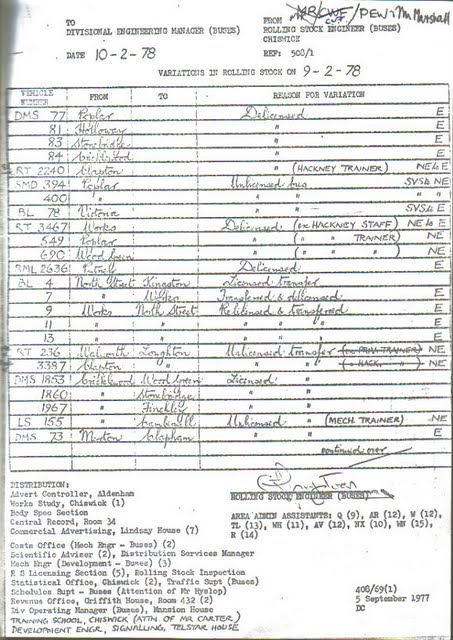 TO
DIVISIONAL ENGINEERING MANAGER (BUSES)
FROM /PEW: Mr Marshall
ROLLING STOCK ENGINEER (BUSES)
CHISWICK
DATE 10-2-78
REF: 500/1
VARIATIONS IN ROLLING STOCK ON 9-2-78
VEHICLE NUMBER FROM TO REASON FOR VARIATION
DMS 77 Poplar Delicensed E
81 Holloway " E
83 Stonebridge " E
84 Cricklewood " E
RT 2240 Clapton " (HACKNEY TRAINER) NE to E
SMD 394 Poplar Unlicensed bus SVS to NE
400 " " " " "
BL 78 Victoria " " SVS to E
RT 3467 Works Delicensed (ex HACKNEY STAFF) NE to E
549 Poplar " ( " " TRAINER) NE
690 Wood Green " ( " " " ) NE
RML 2636 Putney Delicensed E
BL 4 North Street Kingston Licensed transfer
7 " Works Transferred & delicensed E
9 Works North Street Relicensed & transferred E
11 " " " " E
13 " " " " E
RT 236 Walworth Loughton Unlicensed transfer NE
3387 Clapton " " " ( " HACK. " ) NE
DMS 1853 Cricklewood Wood Green Licensed "
1860 " Stonebridge " "
1967 " Finchley " "
LS 155 " Camberwell Unlicensed " (MECH. TRAINER) NE
DMS 73 Merton Clapham " " E
continued over
DISTRIBUTION:
Advert Controller, Aldenham
Works Study, Chiswick (1)
Body Spec Section
Central Record, Room 34
Commercial Advertising, Lindsay House (7)
Costs Office (Mech Engr - Buses) (2)
Scientific Adviser (2), Distribution Services Manager
Mech Engr (Development - Buses) (3)
R S Licensing Section (5), Rolling Stock Inspection
Statistical Office, Chiswick (2), Traffic Supt (Buses)
Schedules Supt - Buses (Attention of Mr Hyslop)
Revenue Office, Griffith House, Room 432 (2)
Div Operating Manager (Buses), Mansion House
TRAINING SCHOOL, CHISWICK (ATTN OF MR CARTER)
DEVELOPMENT ENGR, SIGNALLING, TELSTAR HOUSE
ROLLING STOCK ENGINEER (BUSES)
AREA ADMIN ASSISTANTS: Q (9), AR (12), W (12),
TL (13), WH (11), AV (12), NX (10), WN (15),
R (14)
408/69(1)
5 September 1977
DC